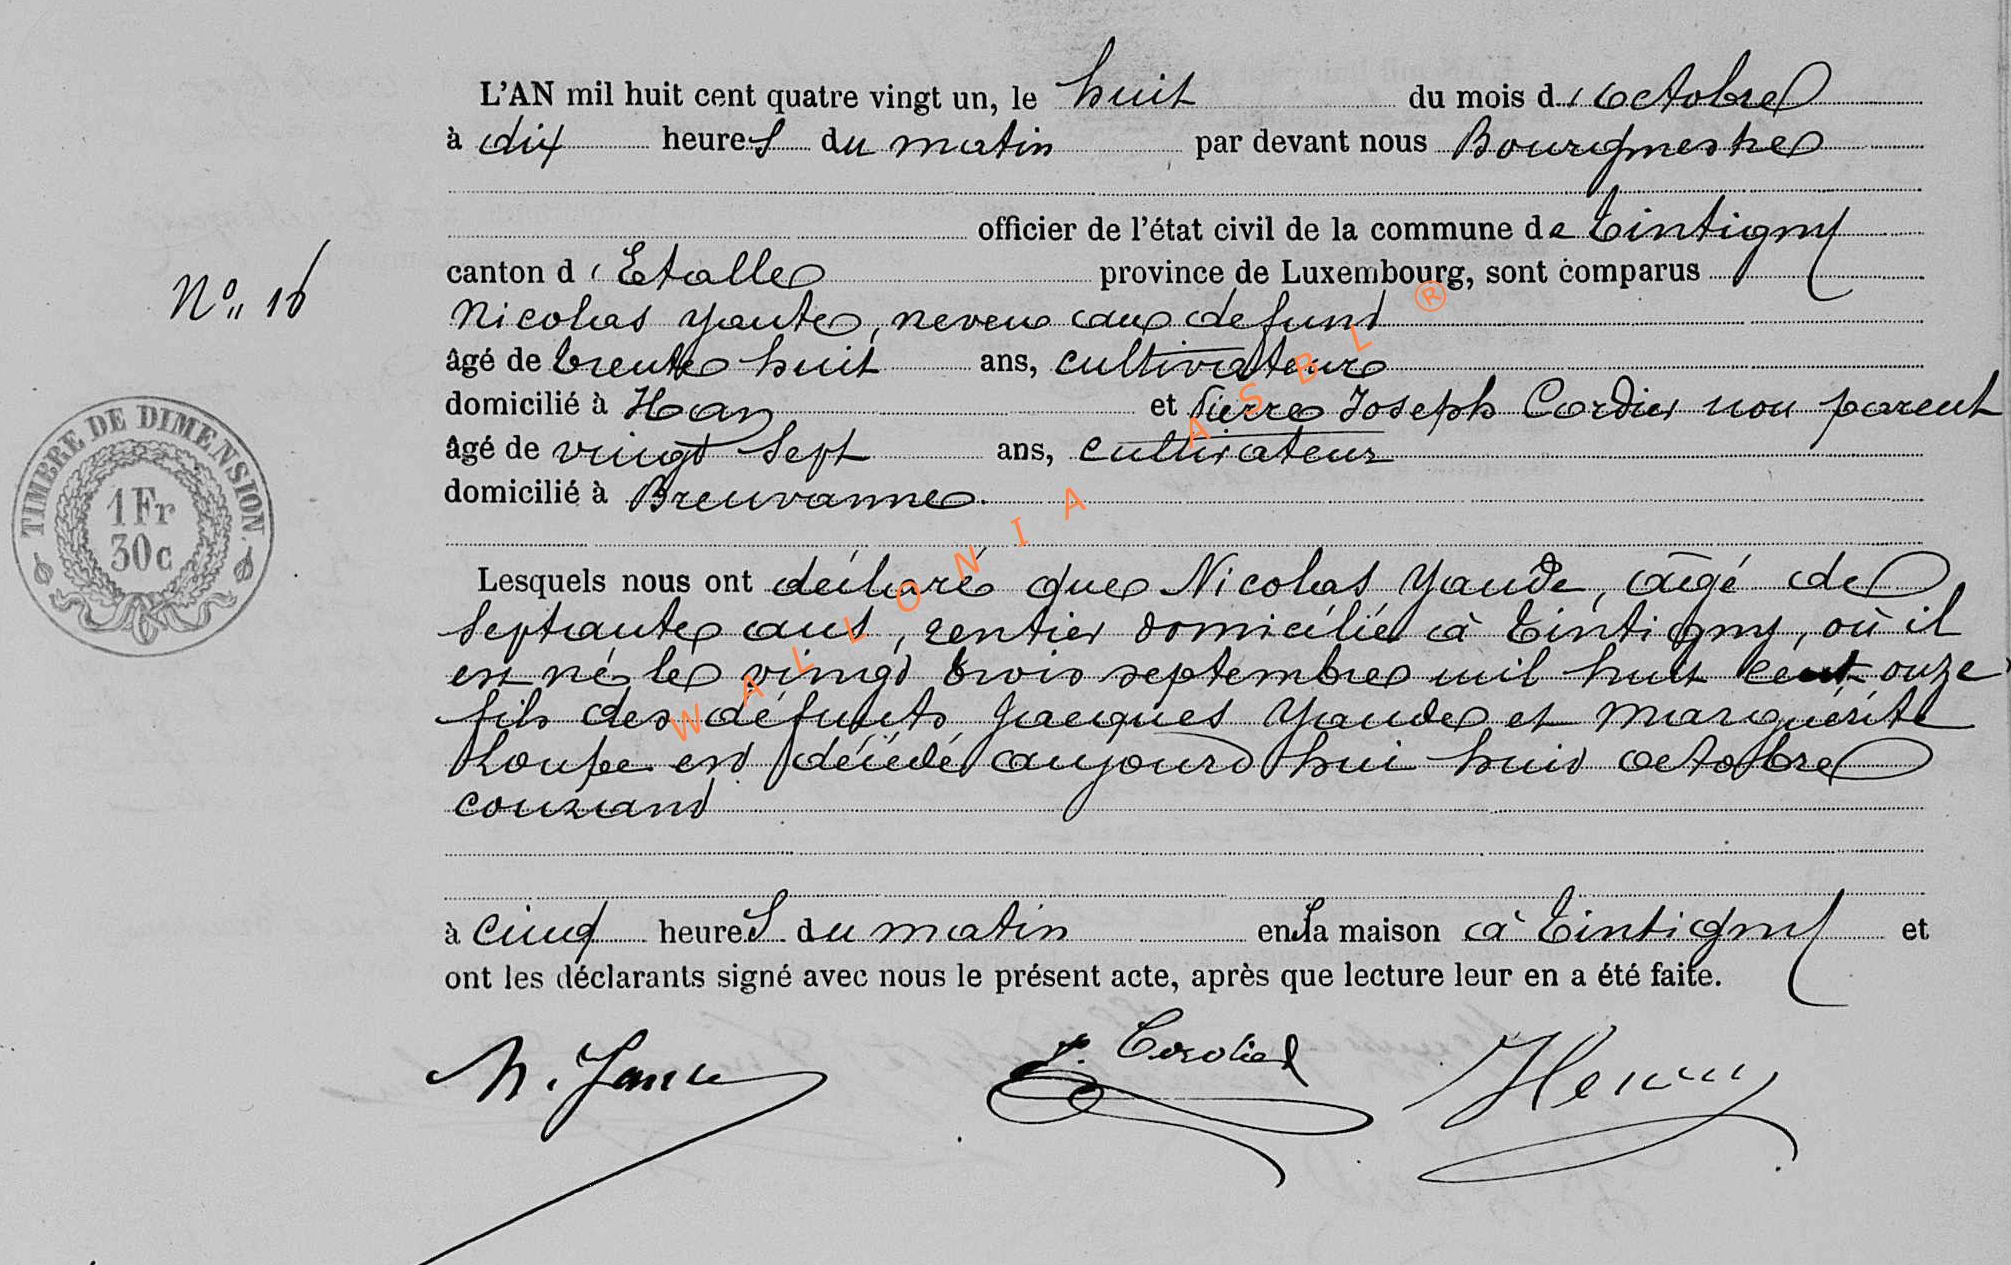 L'AN mil huit cent quatre vingt un, le huit du mois d'octobre
à dix heures du matin par devant nous Bourgmestre
officier de l'état civil de la commune de Tintigny
N° 16
canton d'Etalle province de Luxembourg, sont comparus
Nicolas Yante, neveu au defunt
âgé de trente huit ans, cultivateur
domicilié à Han et Pierre Joseph Cordier non parent
âgé de vingt sept ans, cultivateur
domicilié à Breuvanne.
TIMBRE DE DIMENSION.
1 Fr
30c
Lesquels nous ont déclaré que Nicolas Yande, âgé de
septante ans, rentier domicilié à Tintigny, où il
est né le vingt trois septembre mil huit cent onze
fils des défunts Jacques Yande et Marguérite
est décédé aujourd'hui huit octobre
courant
à cinq heures du matin en sa maison à Tintigny et
ont les déclarants signé avec nous le présent acte, après que lecture leur en a été faite.
N. P. Cordier Henry
WALLONIA ASBL ®